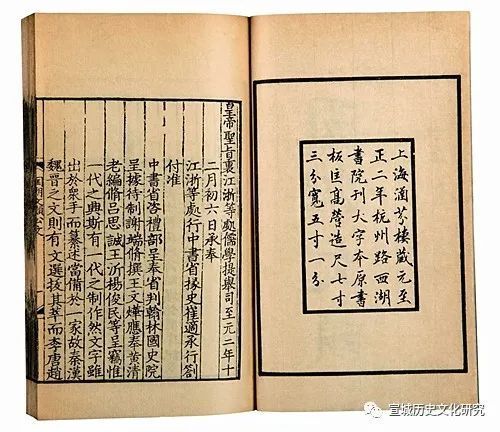 上海涵芬樓藏元至
正二年杭州路西湖
書院刊大字本原書
板匡高營造尺七寸
三分寬五寸一分
皇帝聖旨裏江浙等處儒學提舉司至元二年十
二月初六日承奉
江浙等處行中書省掾史崔適承行劄
付准
中書省咨禮部呈奉省判翰林國史院
呈據待制謝端脩撰王文燁應奉黃清
老編脩呂思誠王沂楊俊民等呈竊惟
一代之典斯有一代之制作然文字雖
出於衆手而纂述當備於一家故秦漢
魏晉之文則有文選拔其萃而李唐趙
宣城历史文化研究